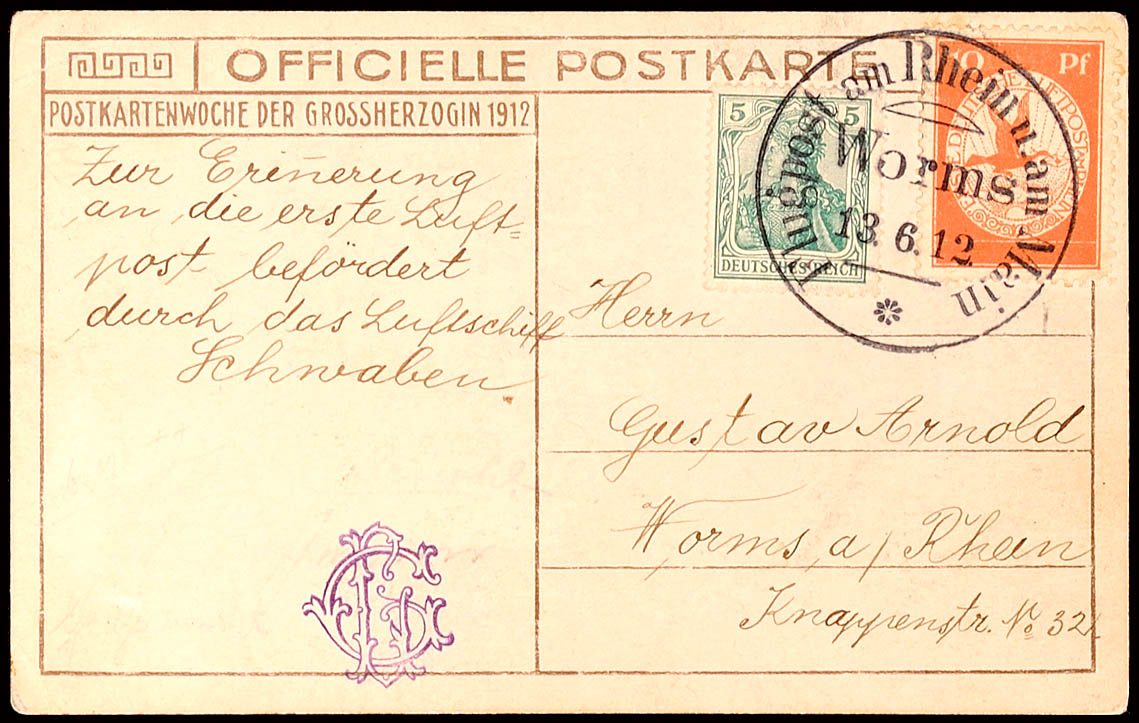 OFFICIELLE POSTKARTE
POSTKARTENWOCHE DER GROSSHERZOGIN 1912
Zur Erin̄erung
an die erste Luft=
post befördert
durch das Luftschiff
Schwaben
5 5
DEUTSCHES REICH
10 Pf
Flugpost am Rhein u. am Main
Worms
13. 6. 12
Herrn
Gustav Arnold
Worms a/Rhein
Knappenstr. No 32